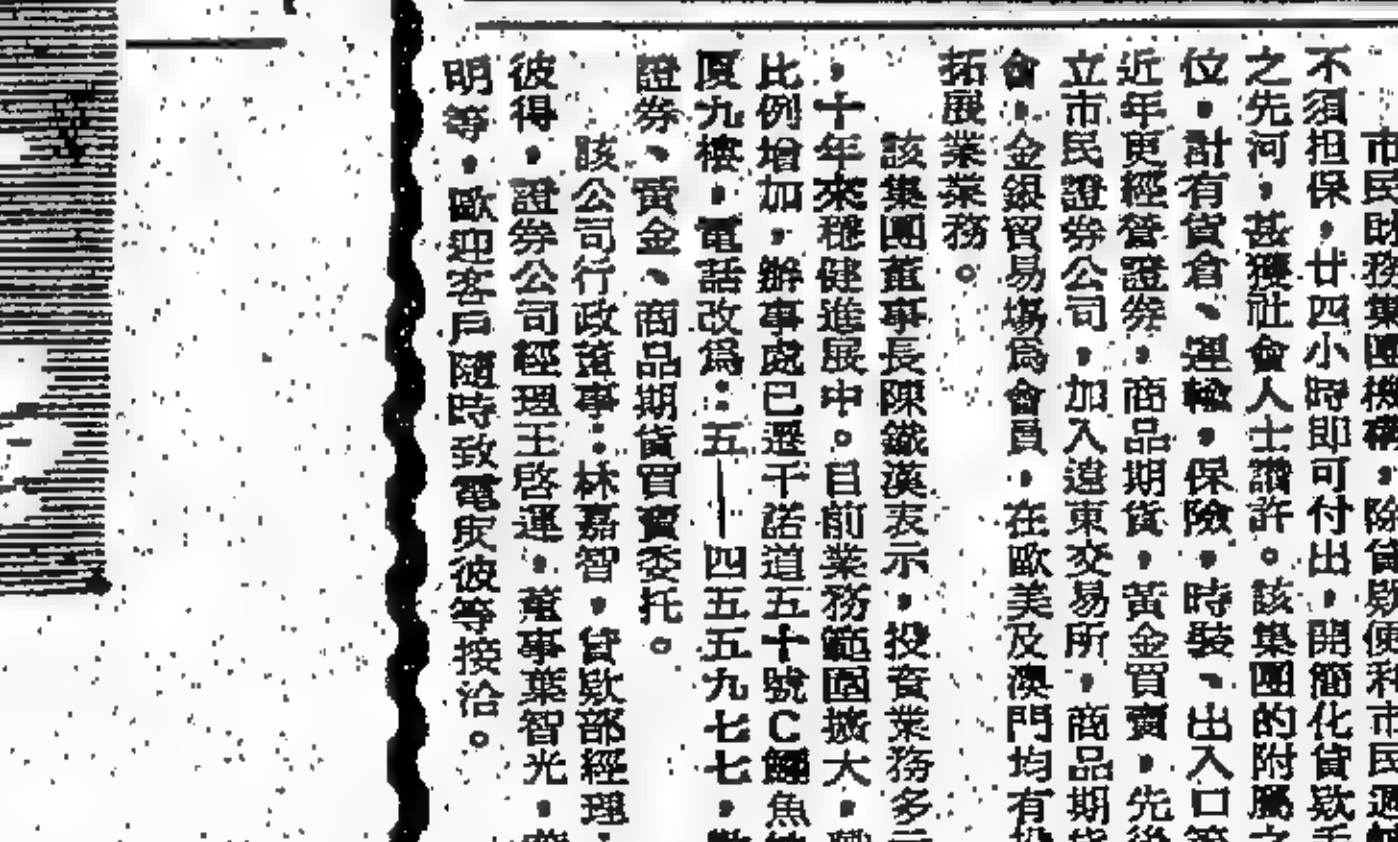 市民財務集團機構，除貸款便利市民週轉
不須担保，廿四小時即可付出，開簡化貸款手
之先河，甚獲社會人士讚許。該集團的附屬之
位，計有貨倉、運輸，保險，時裝、出入口等
近年更經營證券，商品期貨，黃金買賣，先後
立市民證券公司，加入遠東交易所，商品期貨
會，金銀貿易塲爲會員，在歐美及澳門均有投
拓展業務。
該集團董事長陳鐵漢表示，投資業務多元
，十年來穩健進展中。目前業務範圍擴大，職
比例增加，辦事處已遷干諾道五十號C鱷魚
厦九樓，電話改爲：五｜四五五九七七，
證券、黃金、商品期貨買賣委托。
該公司行政董事：林嘉智，貸款部經理，
彼得，證券公司經理王啓運，董事葉智光，
明等，歐迎客戶隨時致電 彼等接洽。